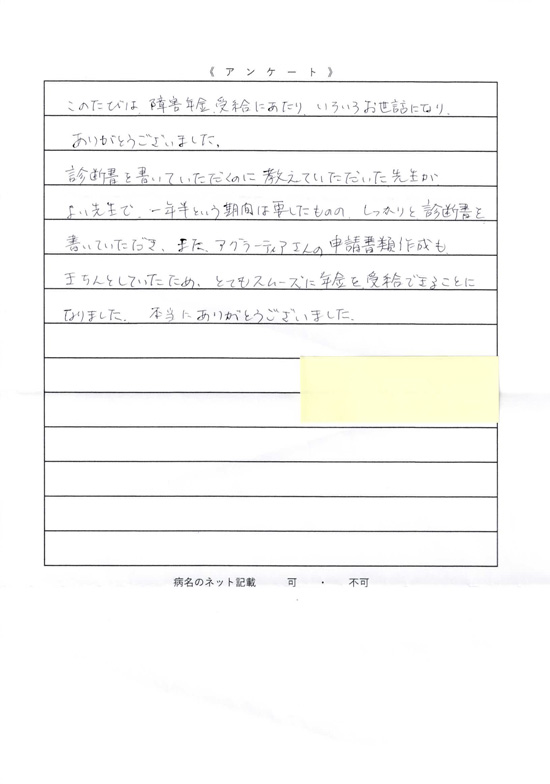 《アンケート》
このたびは、障害年金受給にあたり、いろいろお世話になり、
ありがとうございました。
診断書を書いていただくのに教えていただいた先生が
よい先生で、一年半という期間は要したものの、しっかりと診断書を
書いていただき、また、アグラーティアさんの申請書類作成も
きちんとしていたため、とてもスムーズに年金を受給できることに
なりました。 本当にありがとうございました。
病名のネット記載 可 ・ 不可